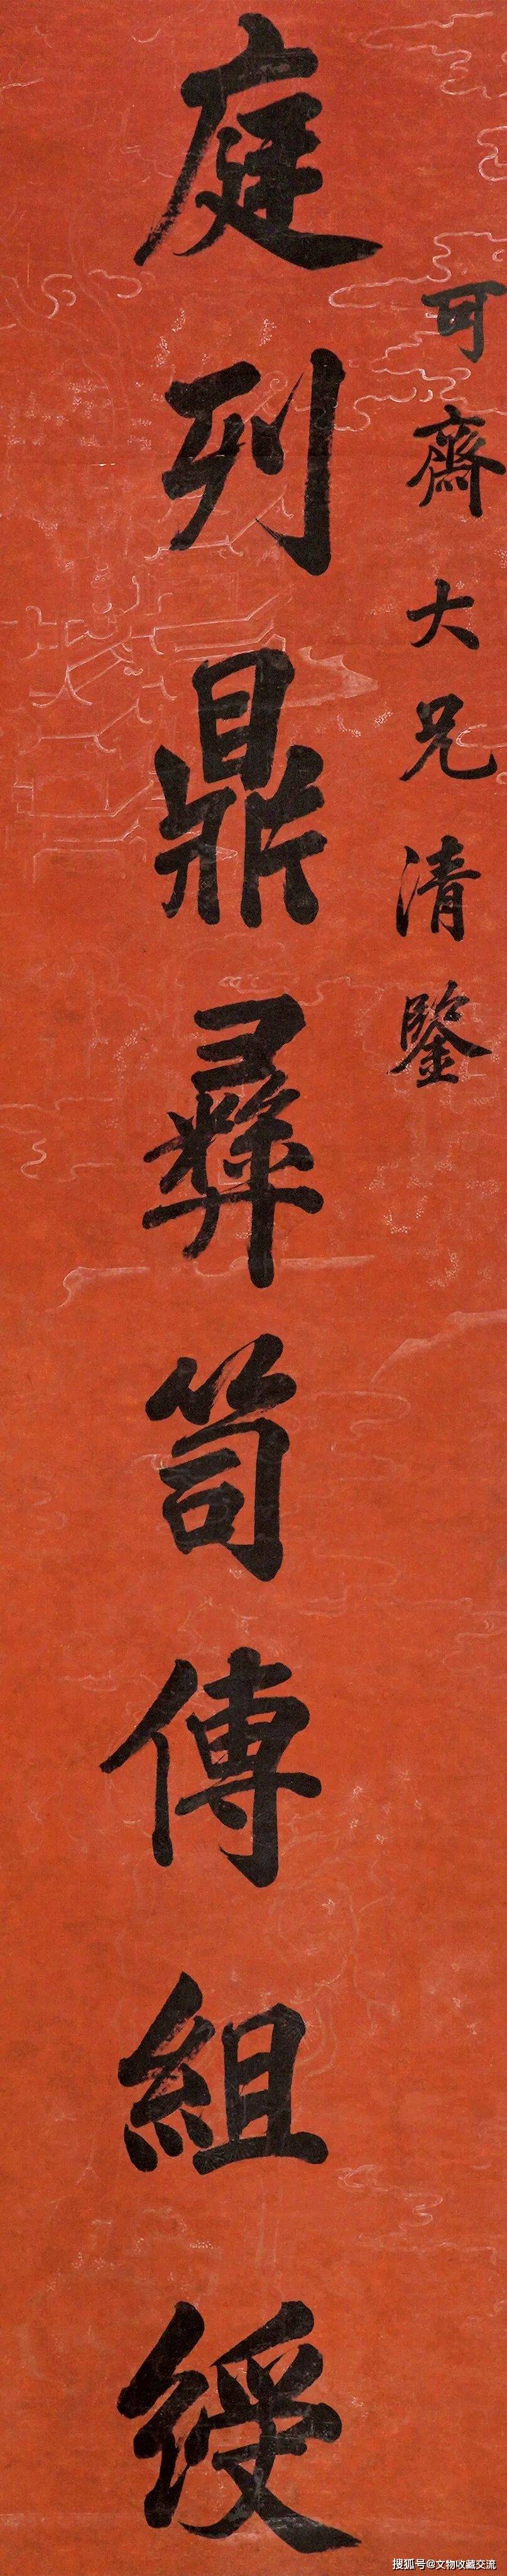 可齋大兄清鑒
庭列鼎彝笥傳組綬
搜狐号@文物收藏交流